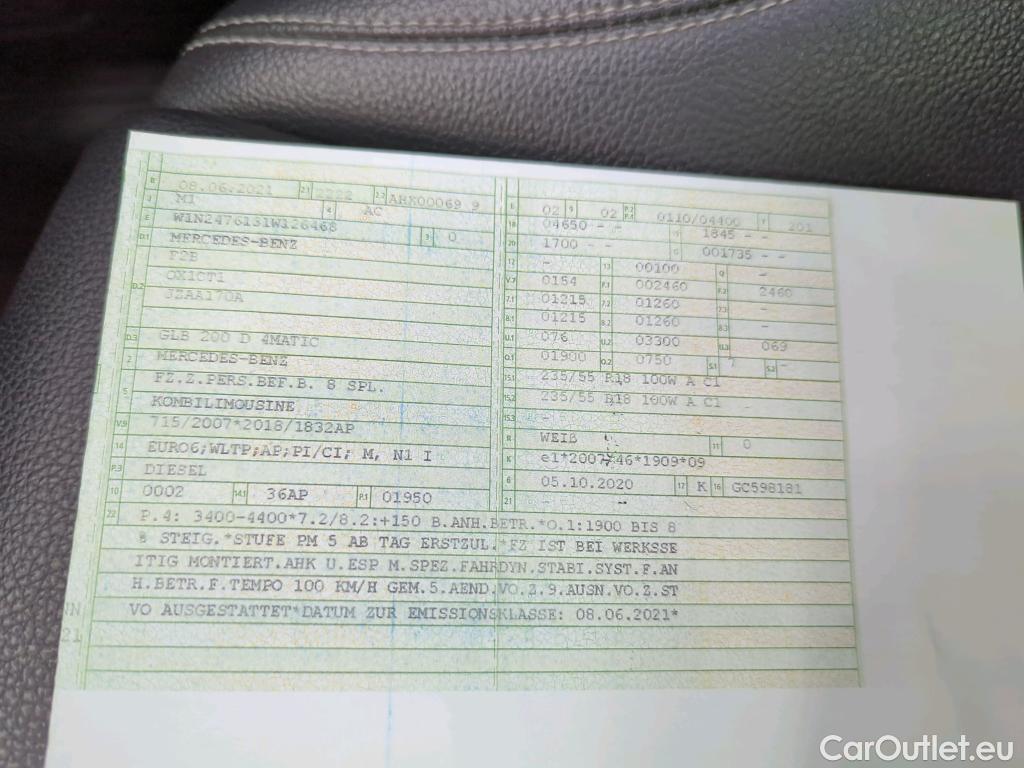 B 08.06.2021 2.1 2222 2.2 AHX00069 9
J M1 4 AC
E W1N2476131W126468 3 0
D.1 MERCEDES-BENZ
F2B
D.2 OX1CT1
5ZAA170A
D.3 GLB 200 D 4MATIC
2 MERCEDES-BENZ
5 FZ.Z.PERS.BEF.B. 8 SPL.
KOMBILIMOUSINE
V.9 715/2007*2018/1832AP
14 EURO6;WLTP;AP;PI/CI; M, N1 I
P.3 DIESEL
10 0002 14.1 36AP P.1 01950
L 02 9 02 P.2 P.4 0110/04400 T 201
18 04650 - - 19 1845 - -
20 1700 - - G 001735 - -
12 - 13 00100 Q -
V.7 0154 F.1 002460 F.2 2460
7.1 01215 7.2 01260 7.3 -
8.1 01215 8.2 01260 8.3 -
U.1 076 U.2 03300 U.3 069
O.1 01900 O.2 0750 S.1 7 S.2 -
15.1 235/55 R18 100W A C1
15.2 235/55 R18 100W A C1
15.3 -
R WEIß 11 0
K e1*2007*46*1909*09
6 05.10.2020 17 K 16 GC598181
21 - -
22 P.4: 3400-4400*7.2/8.2:+150 B.ANH.BETR.*O.1:1900 BIS 8
% STEIG.*STUFE PM 5 AB TAG ERSTZUL.*FZ IST BEI WERKSSE
ITIG MONTIERT.AHK U.ESP M.SPEZ.FAHRDYN.STABI.SYST.F.AN
H.BETR.F.TEMPO 100 KM/H GEM.5.AEND.VO.Z.9.AUSN.VO.Z.ST
VO AUSGESTATTET*DATUM ZUR EMISSIONSKLASSE: 08.06.2021*
21
CarOutlet.eu